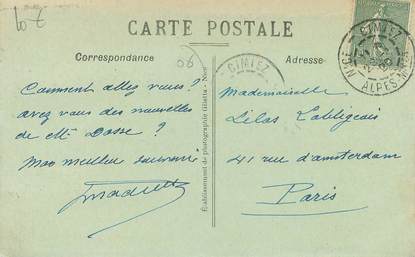 CARTE POSTALE
Correspondance
Adresse
Comment allez vous?
avez vous des nouvelles
de Dosse?
Mon meilleur souvenir
Mademoiselle
Lilas
41 rue d'amsterdam
Paris
CIMIEZ
NICE CIMIEZ
ALPES
Etablissement de photographie Giletta - Nice